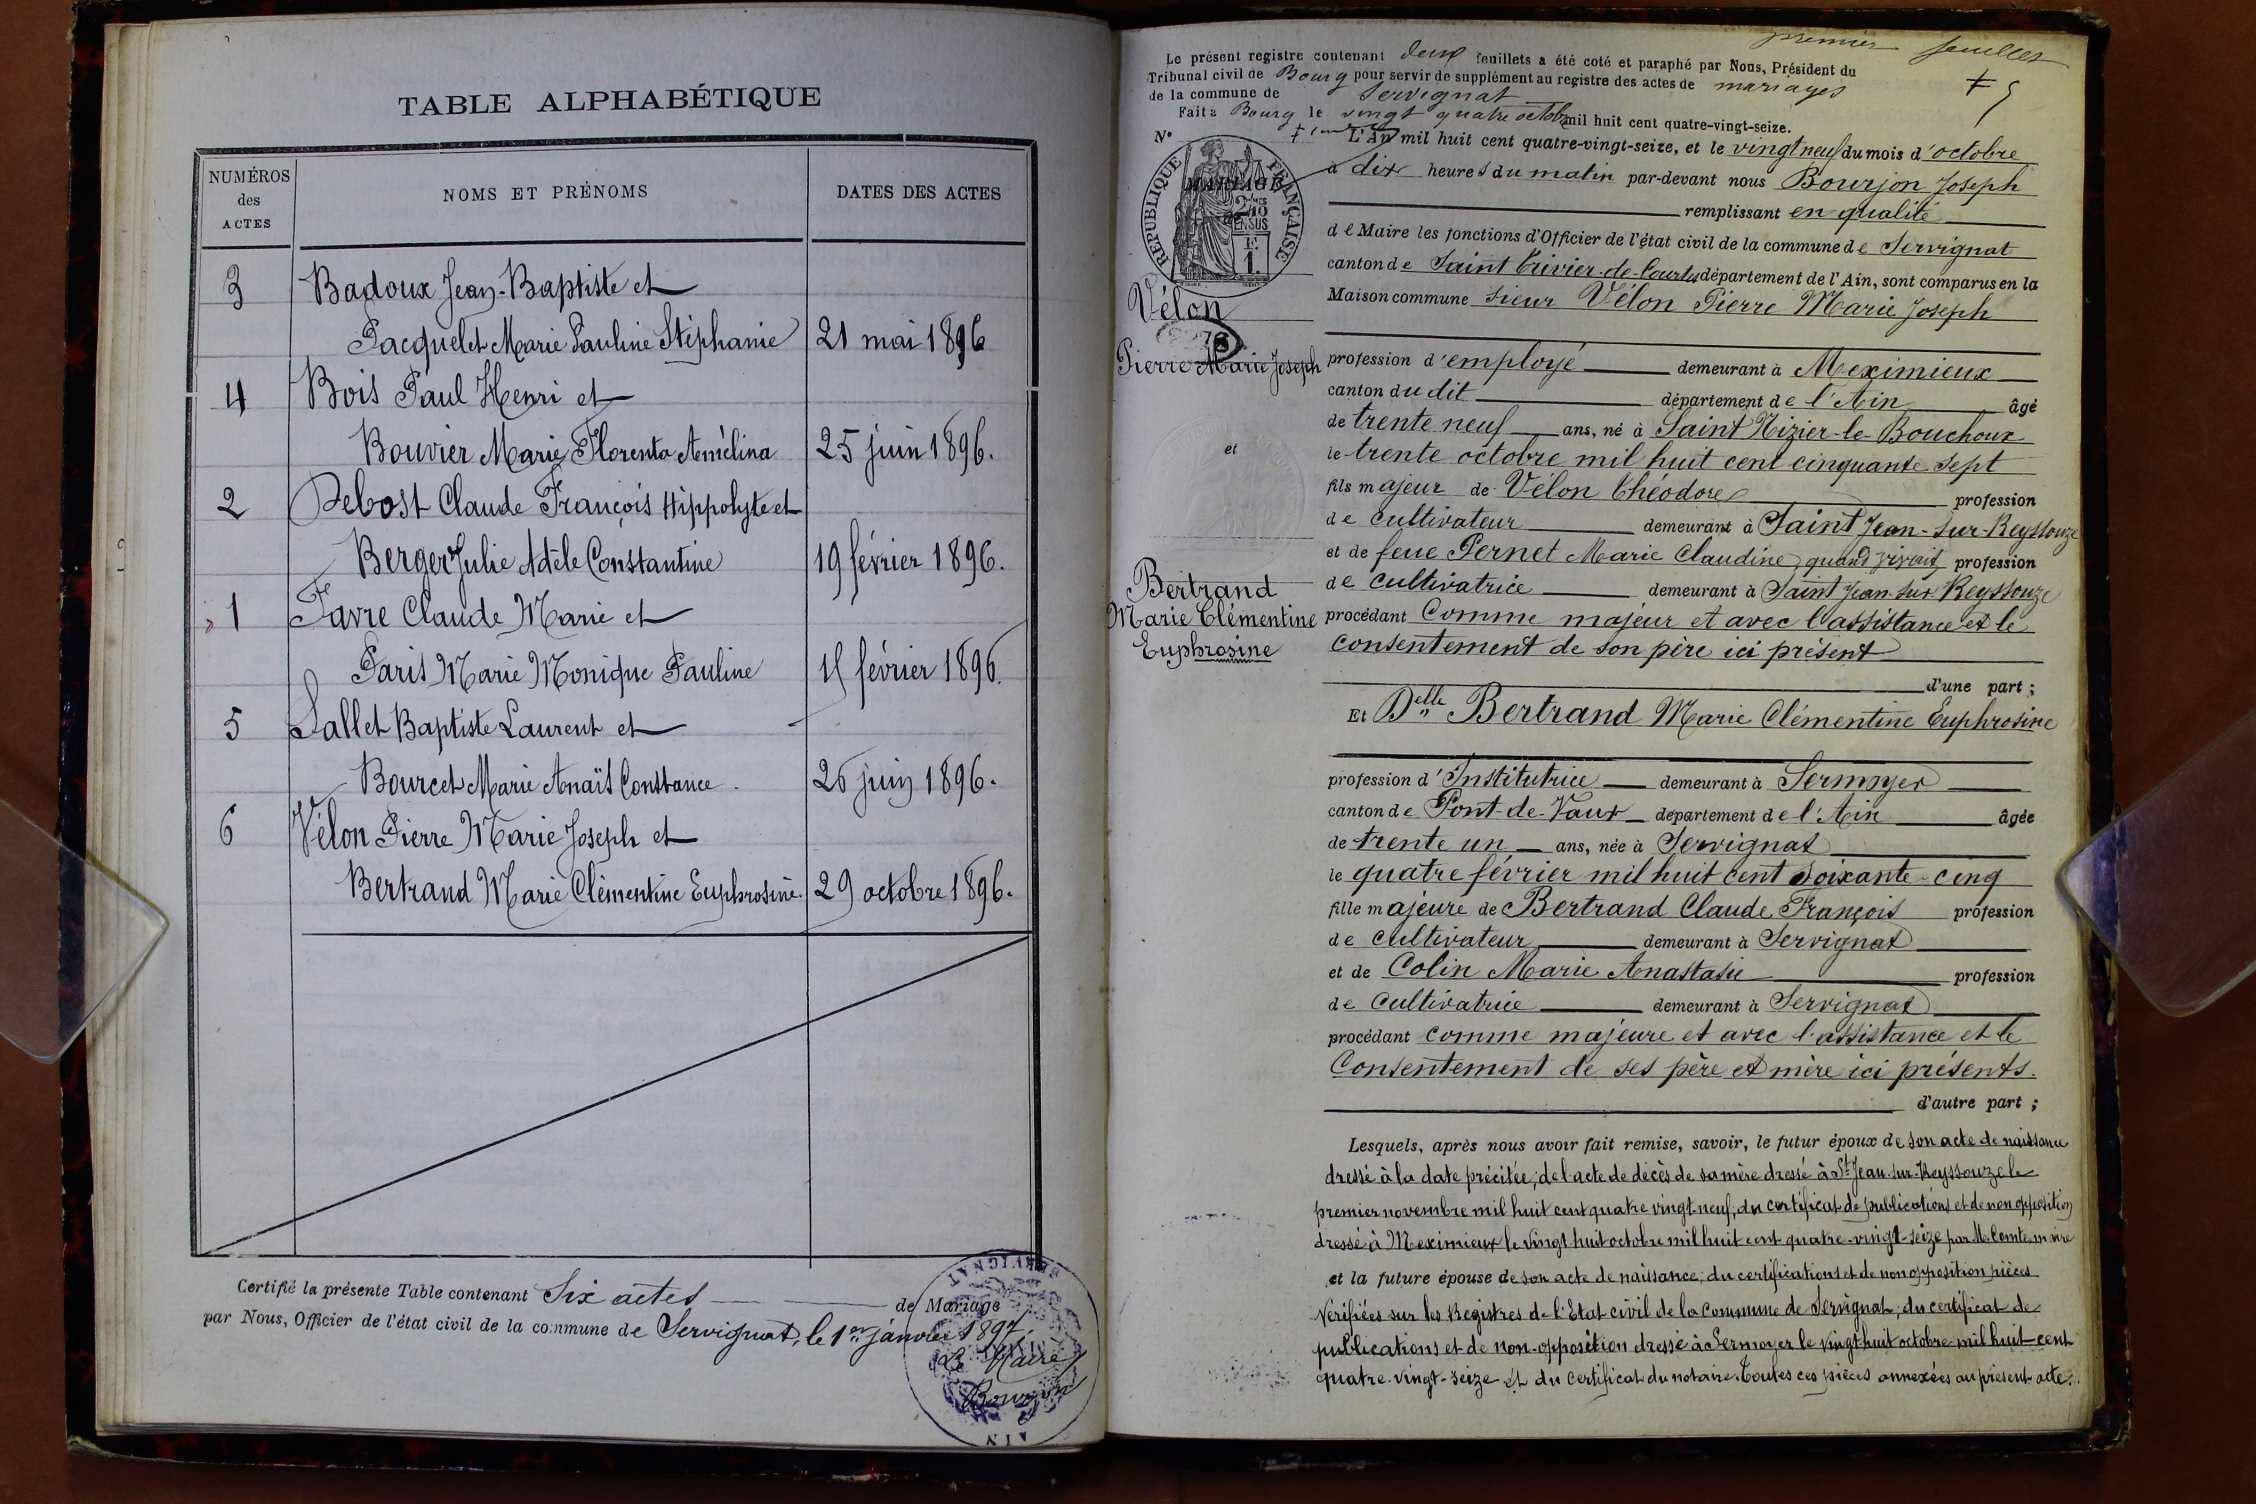 TABLE ALPHABÉTIQUE
NUMÉROS des ACTES
NOMS ET PRÉNOMS
DATES DES ACTES
3 Badoux Jean-Baptiste et
Pacquelet Marie Pauline Stéphanie 21 mai 1896
4 Bois Paul Henri et
Bouvier Marie Florenta Amélina 25 juin 1896.
2 Debost Claude François Hippolyte et
Berger Julie Adèle Constantine 19 février 1896.
1 Favre Claude Marie et
Paris Marie Monique Pauline février 1896.
5 Lallet Baptiste Laurent et
Bourcet Marie Anaïs Constance. 26 juin 1896.
6 Vélon Pierre Marie Joseph et
Bertrand Marie Clémentine Euphrosine. 29 octobre 1896.
Certifié la présente Table contenant Six actes de Mariage
par Nous, Officier de l'état civil de la commune de Servignat, le 1er janvier 1897.
Le Maire
Bourjon
SERVIGNAT
AIN
premier feuillet
Le présent registre contenant deux feuillets a été coté et paraphé par Nous, Président du
Tribunal civil de Bourg pour servir de supplément au registre des actes de mariages
de la commune de Servignat
Fait à Bourg le vingt quatre octobre mil huit cent quatre-vingt-seize.
N°
MARIAGE
RÉPUBLIQUE FRANÇAISE
2/10 EN SUS
1 F.
Vélon
Pierre Marie Joseph
et
Bertrand
Marie Clémentine
Euphrosine
L'An mil huit cent quatre-vingt-seize, et le vingt neuf du mois d'octobre
à dix heures du matin par-devant nous Bourjon Joseph
remplissant en qualité
de Maire les fonctions d'Officier de l'état civil de la commune de Servignat
canton de Saint Trivier-de-Courtes département de l'Ain, sont comparus en la
Maison commune sieur Vélon Pierre Marie Joseph
profession d'employé demeurant à Meximieux
canton du dit département de l'Ain âgé
de trente neuf ans, né à Saint Nizier-le-Bouchoux
le trente octobre mil huit cent cinquante sept
fils majeur de Vélon Théodore profession
de cultivateur demeurant à Saint Jean-sur-Reyssouze
et de feue Pernet Marie Claudine, quand vivait profession
de cultivatrice demeurant à Saint Jean-sur-Reyssouze
procédant Comme majeur et avec l'assistance et le
consentement de son père ici présent
d'une part ;
Et Delle Bertrand Marie Clémentine Euphrosine
profession d'Institutrice demeurant à Sermoyer
canton de Pont-de-Vaux département de l'Ain âgée
de trente un ans, née à Servignat
le quatre février mil huit cent soixante-cinq
fille majeure de Bertrand Claude François profession
de cultivateur demeurant à Servignat
et de Colin Marie Anastasie profession
de cultivatrice demeurant à Servignat
procédant comme majeure et avec l'assistance et le
Consentement de ses père et mère ici présents.
d'autre part ;
Lesquels, après nous avoir fait remise, savoir, le futur époux de son acte de naissance
dressé à la date précitée; de l'acte de décès de sa mère dressé à St Jean-sur-Reyssouze le
premier novembre mil huit cent quatre vingt-neuf, du certificat de publications et de non opposition
dressé à Meximieux le vingt huit octobre mil huit cent quatre-vingt-seize par M. Comte maire
et la future épouse de son acte de naissance; du certifications et de non opposition pièces
vérifiées sur les Registres de l'Etat civil de la Commune de Servignat, du certificat de
publications et de non-opposition dressé à Sermoyer le vingt huit octobre mil huit cent
quatre-vingt-seize et du certificat du notaire. Toutes ces pièces annexées au présent acte.